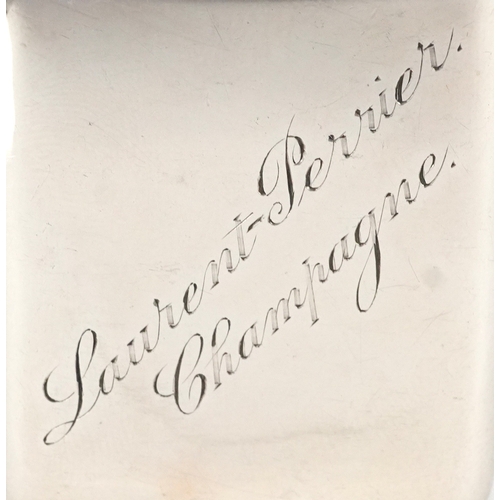 Laurent-Perrier.
Champagne.